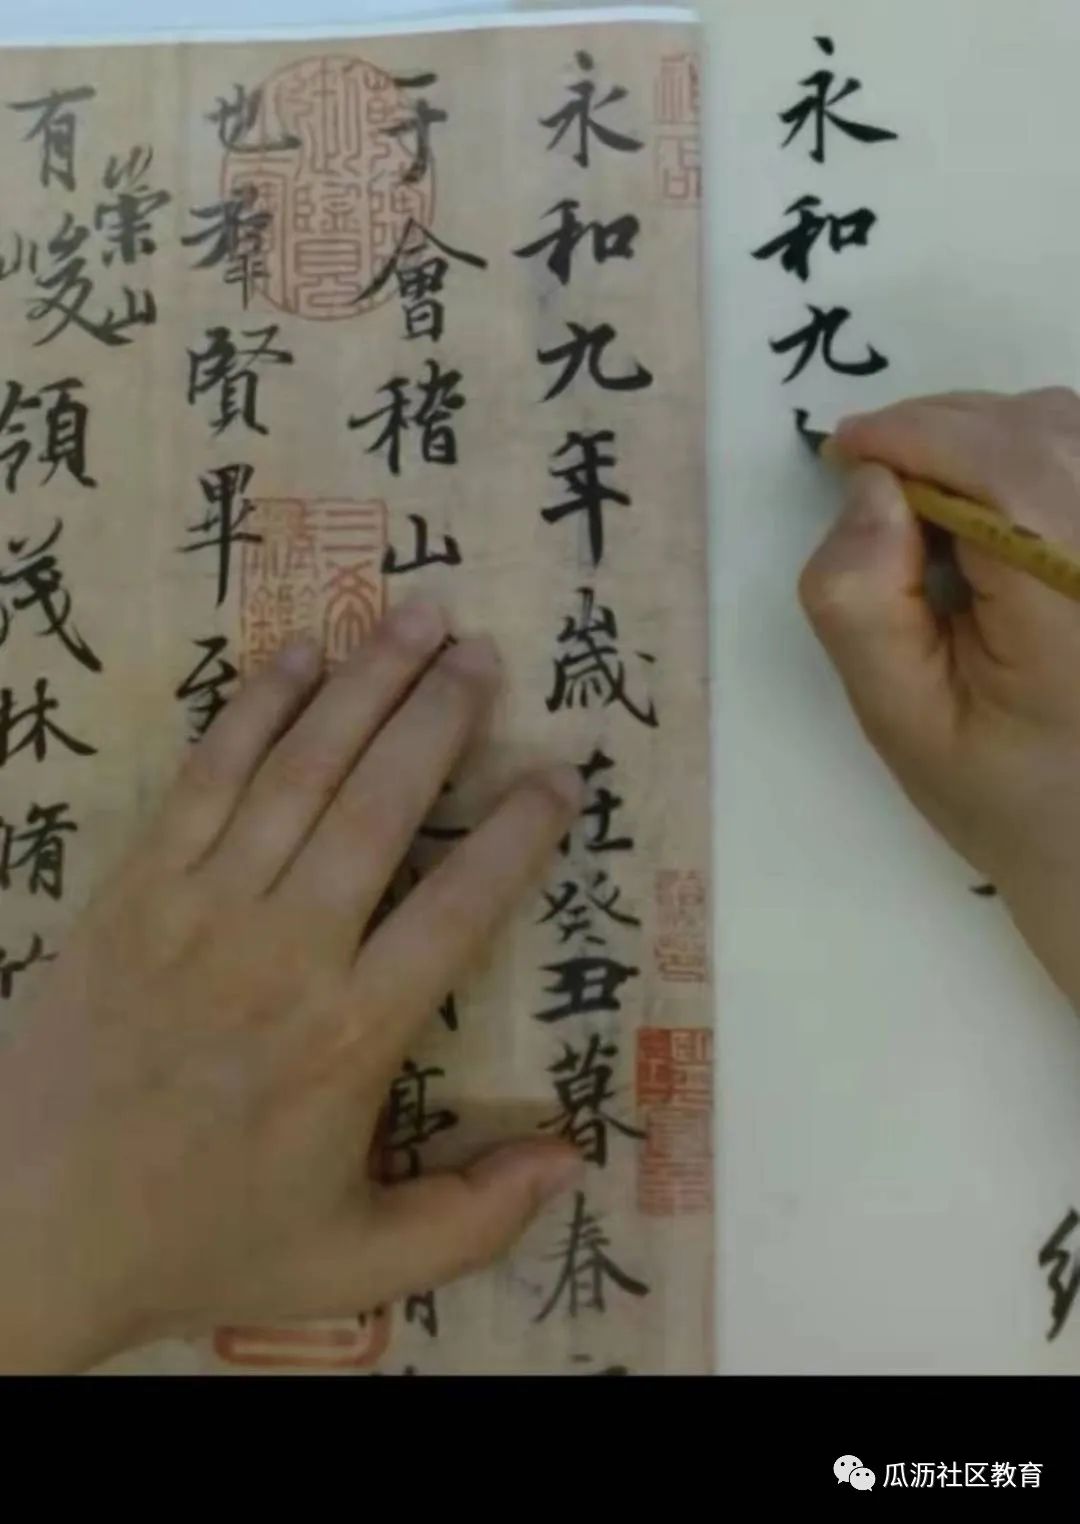 永和九
永和九年歲在癸丑暮春
于會稽山
亭
也羣賢畢至
崇山
有峻領茂林脩
瓜沥社区教育